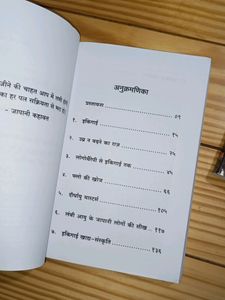 जीने की चाहत आप में
का हर पल सक्रियता से
– जापानी कहावत
अनुक्रमणिका
प्रस्तावना ............ ०९
१. इकिगाई ............ १५
२. उम्र न बढ़ने का राज़ ............ २५
३. लोगोथेरेपी से इकिगाई तक ............ ३५
४. फ्लो की खोज ............ ६६
५. दीर्घायु मास्टर्स ............ १०५
६. लंबी आयु के जापानी लोगों की सीख ... ११७
७. इकिगाई खाद्य-संस्कृति ............ १३६